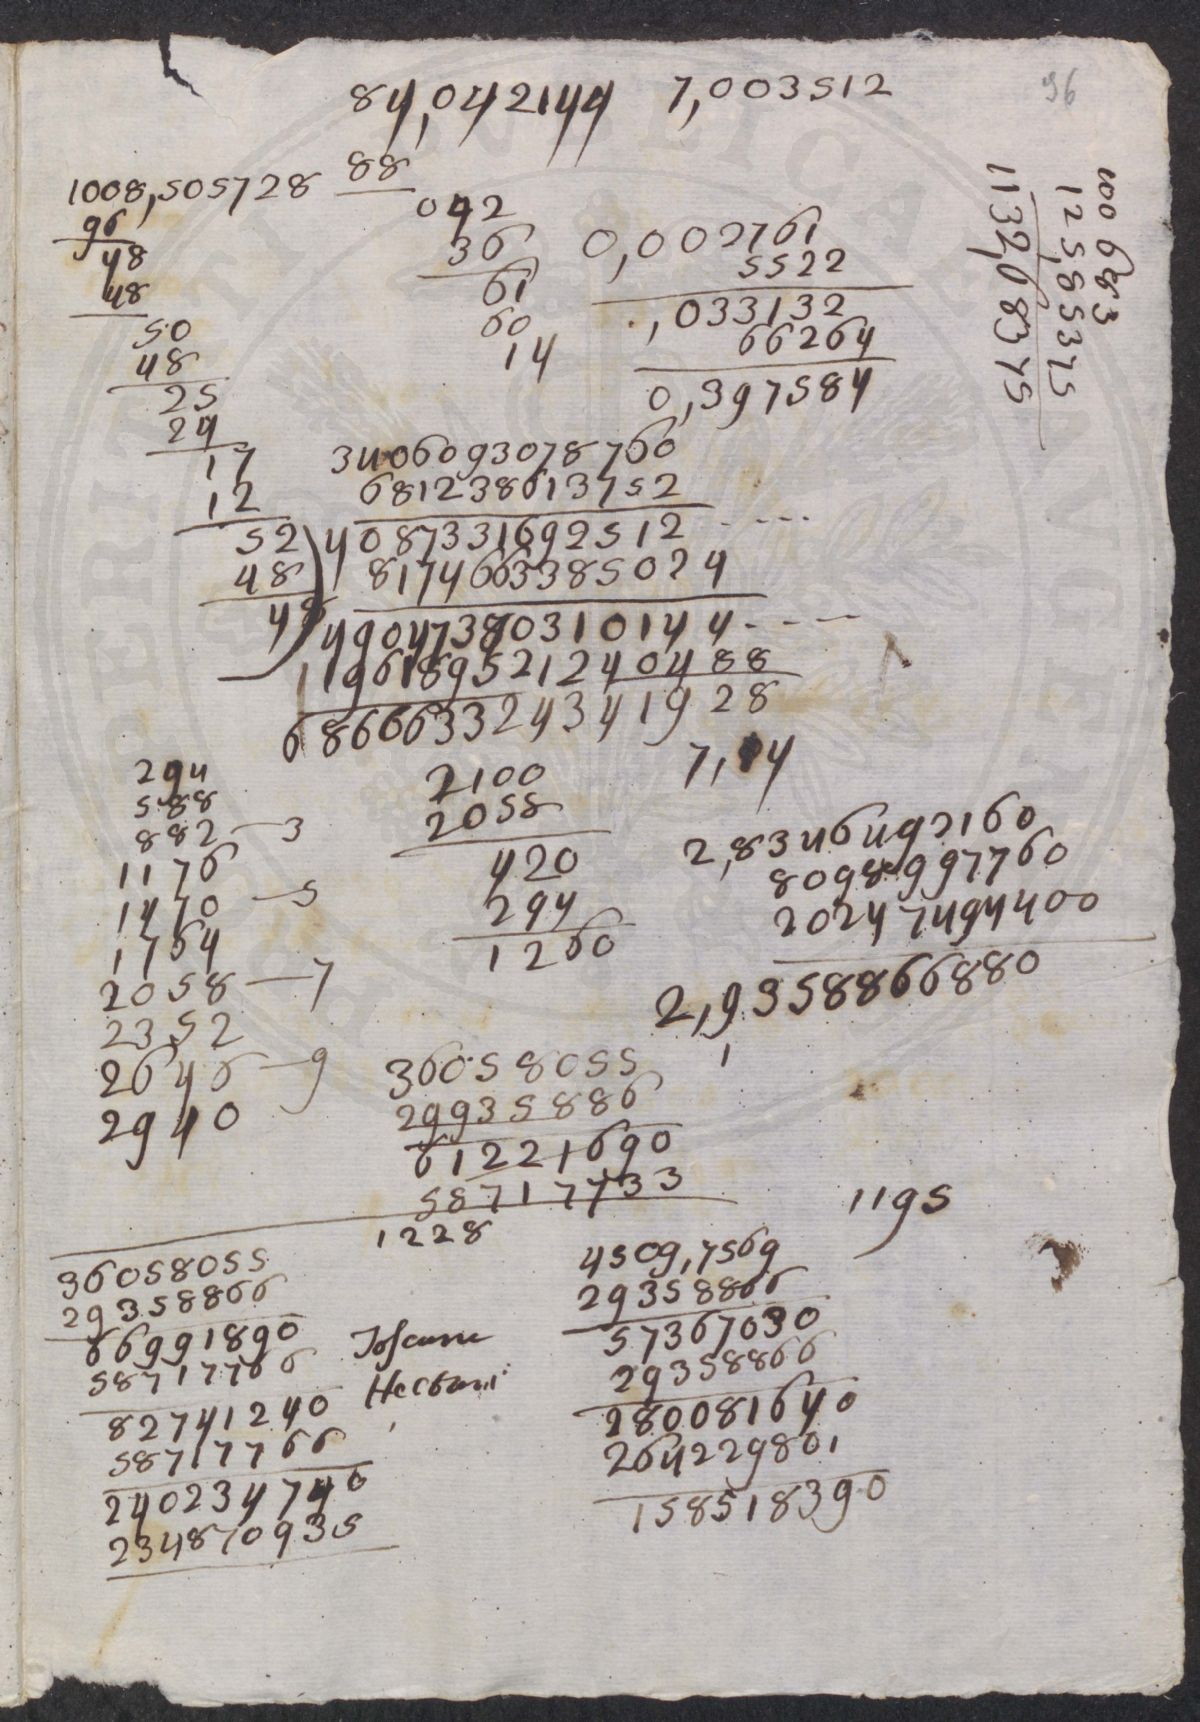 84,042144 7,003512
96
1008,505728 88
96
48
48
50
48
25
24
17
12
52
48
48
042
36
61
60
14
0,002761
5522
.,033132
66264
0,397584
100683
125,85375
1132,68375
3406093078760
681238613752
4087331692512 - - - -
8174663385024
49047380310144 - - - -
19618952124 0488
68666332434 1928
7,14
294
588
882 — 3
1176
1470 — 5
1764
2058 — 7
2352
2646 — 9
2940
2100
2058
420
294
1260
2,8346492160
8098997760
20247494400
2,9358866880
1
36058055
29935886
61221690
58717733
1228
1195
36058055
29358866
66991890
58717766
82741240
58717766
240234740
234870935
4509,7569
29358866
57367030
29358866
280081640
264229801
158518390